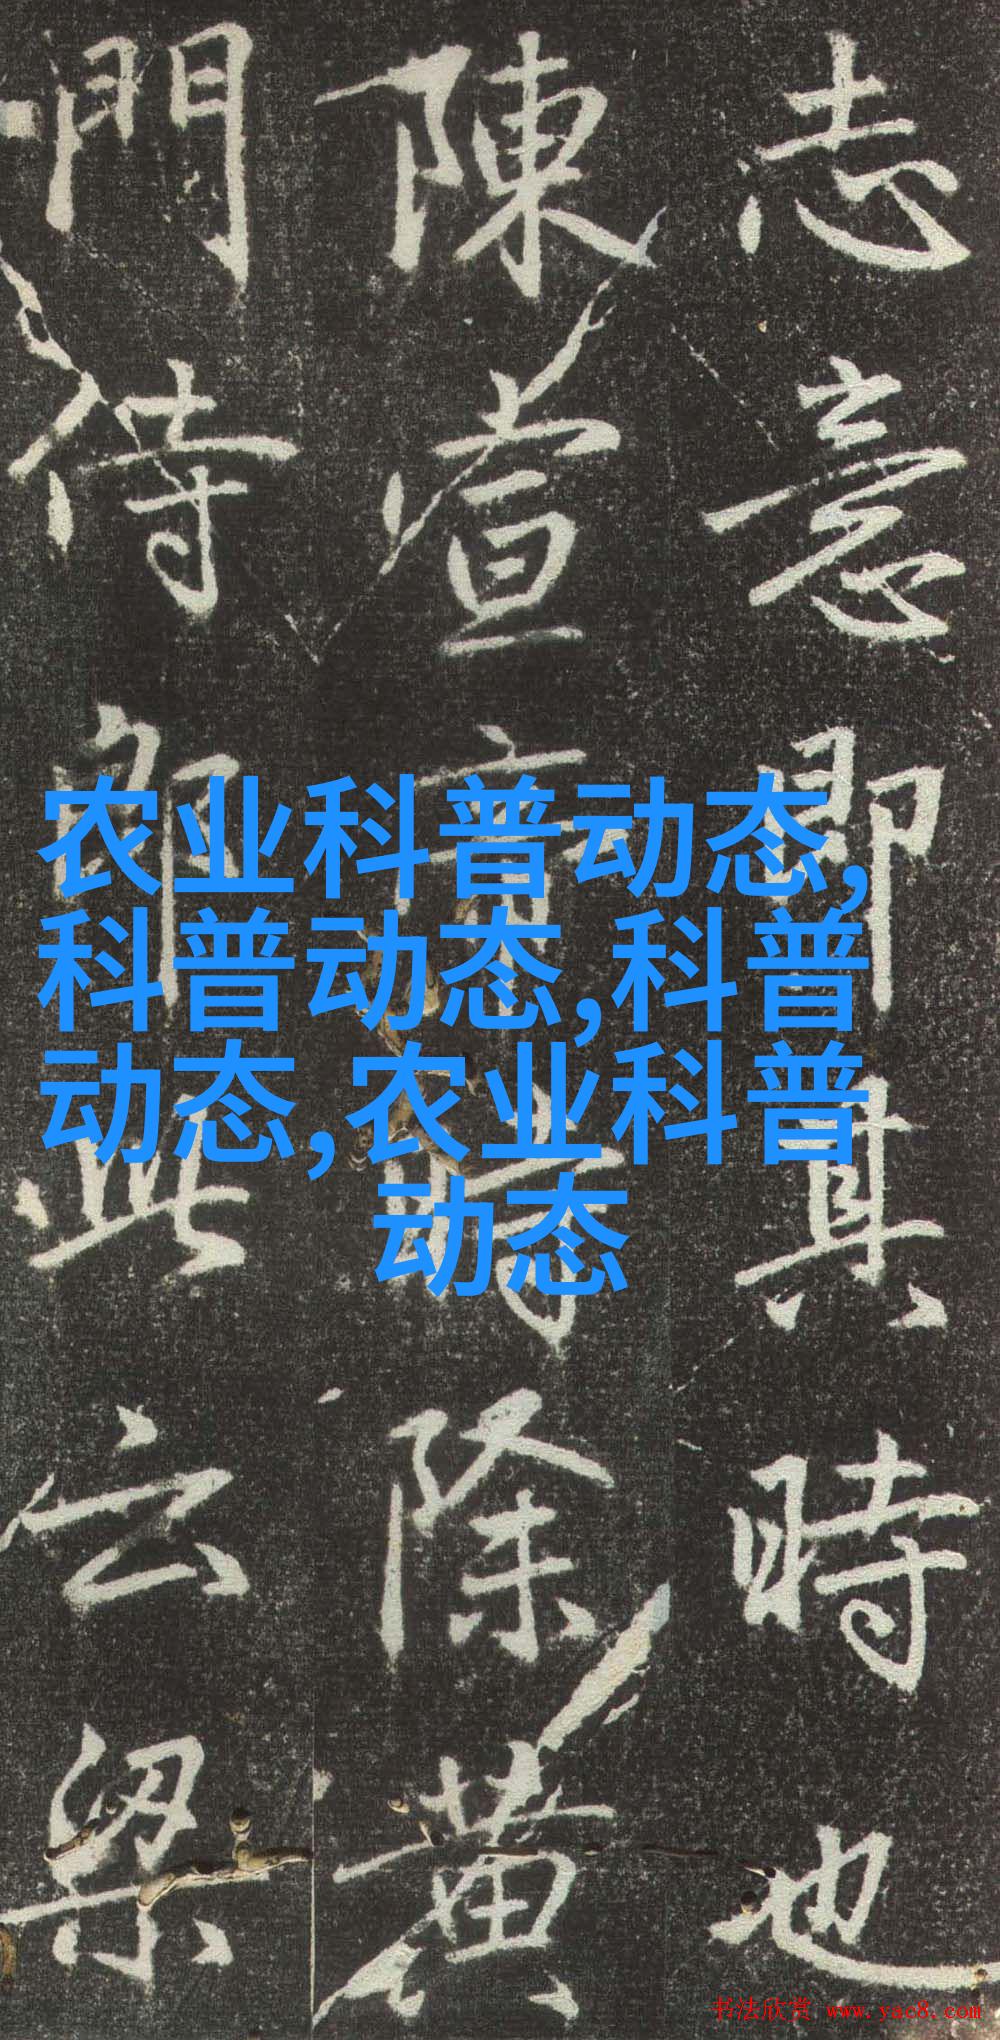 志意即其時也
陳宣帝時除黄
門侍郎此云梁
农业科普动态,
科普动态,科普
动态,农业科普
动态
书法欣赏 www.yac8.com